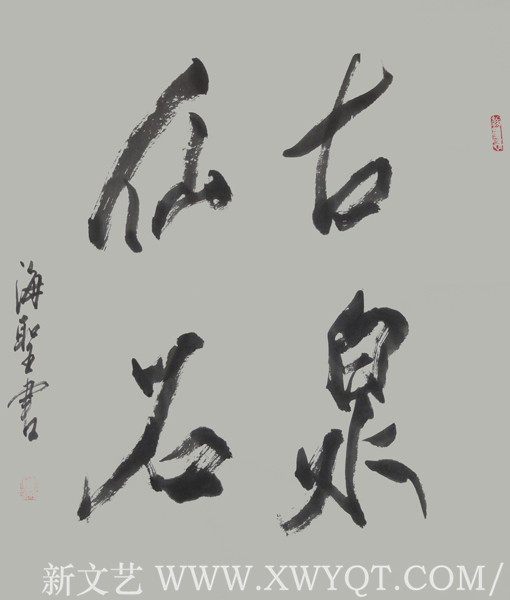 古泉
仙名
海聖書
新文艺 WWW.XWYQT.COM/